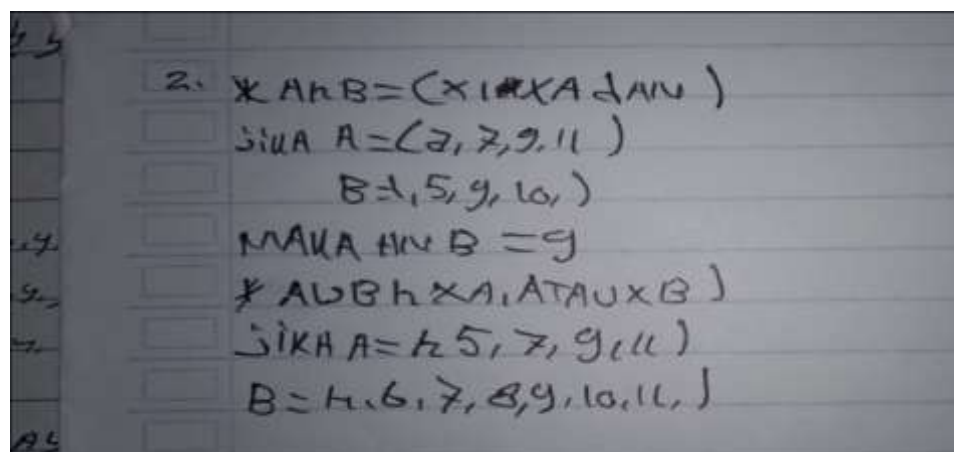 2. * A∩B=(X|XA dAN)
jiKA A=(2,7,9,11)
B=1,5,9,10,)
MAKA AN B =9
* AUB h XA, ATAU X B)
jiKA A=h 5,7,9,11)
B=h.6,7,8,9,10,11,)